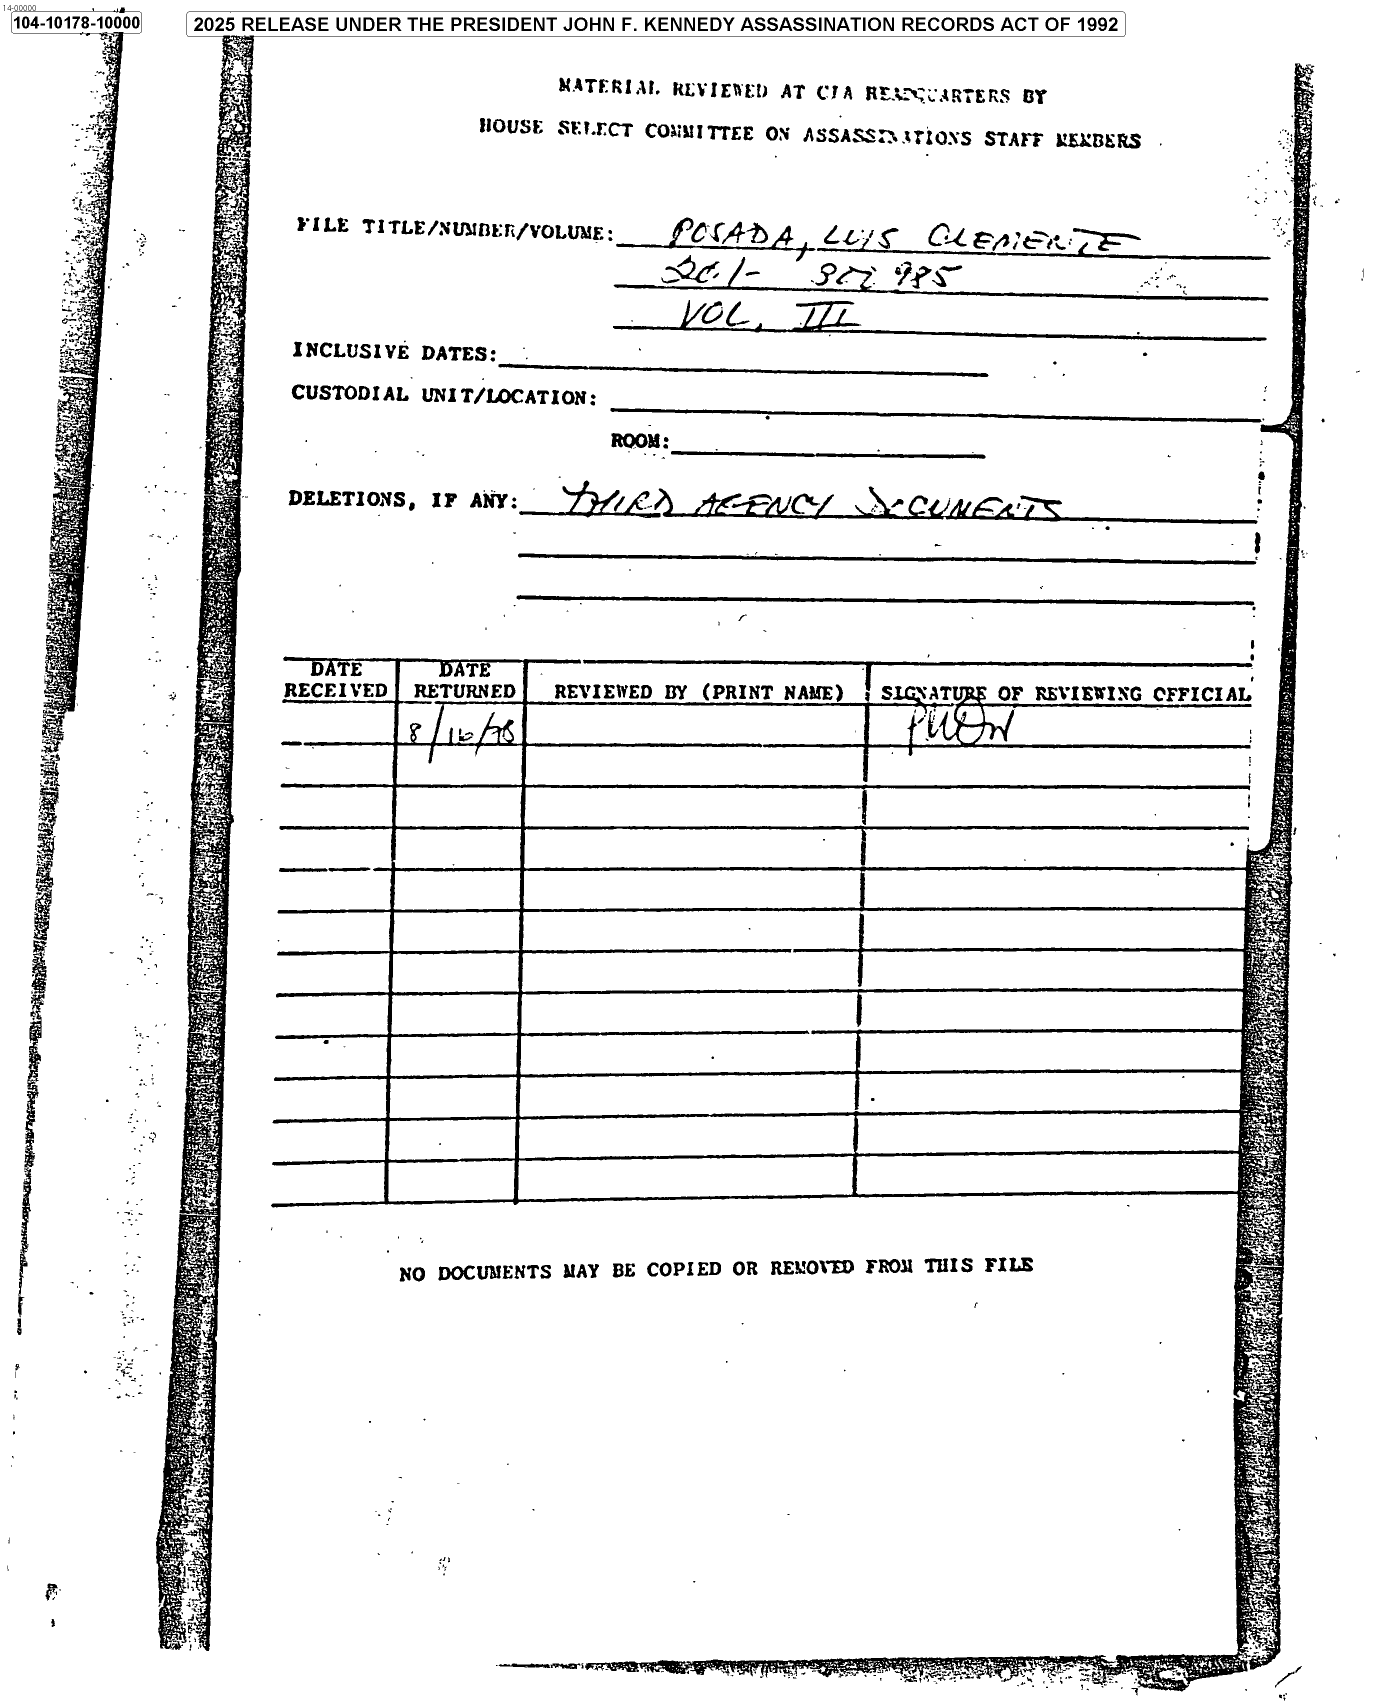 14-00000
104-10178-10000
2025 RELEASE UNDER THE PRESIDENT JOHN F. KENNEDY ASSASSINATION RECORDS ACT OF 1992
MATERIAL REVIEWED AT CIA HEADQUARTERS BY
HOUSE SELECT COMMITTEE ON ASSASSINATIONS STAFF MEMBERS
FILE TITLE/NUMBER/VOLUME: POSADA, LUIS CLEMENTE
201- 985
VOL. III
INCLUSIVE DATES:
CUSTODIAL UNIT/LOCATION:
ROOM:
DELETIONS, IF ANY: THIRD AGENCY DOCUMENTS
DATE RECEIVED DATE RETURNED REVIEWED BY (PRINT NAME) SIGNATURE OF REVIEWING OFFICIAL
8/16/78
NO DOCUMENTS MAY BE COPIED OR REMOVED FROM THIS FILE